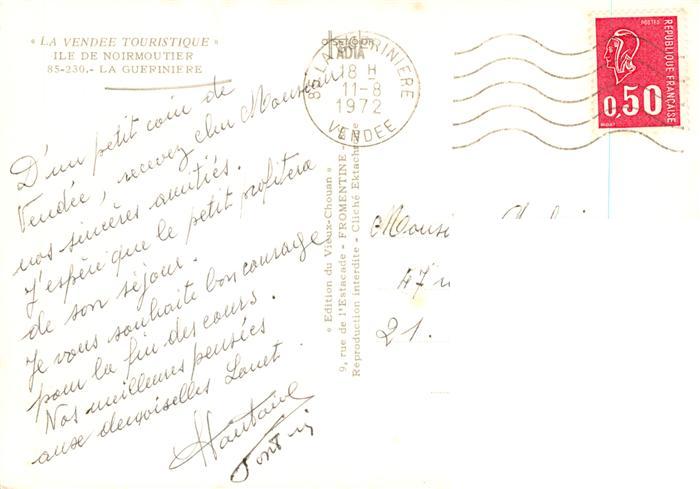 « LA VENDEE TOURISTIQUE »
ILE DE NOIRMOUTIER
85-230,- LA GUERINIERE
D'un petit coin de
Vendée, recevez cher Monsieur
nos sincères amitiés.
J'espère que le petit profitera
de son séjour.
Je vous souhaite bon courage
pour la fin des cours.
Nos meilleures pensées
aux demoiselles
« Edition du Vieux-Chouan »
9, rue de l'Estacade - FROMENTINE -
Reproduction interdite - Cliché Ektachrome
18 H
11-8
1972
VENDEE
POSTES
RÉPUBLIQUE FRANÇAISE
0,50
Monsi
47
21.